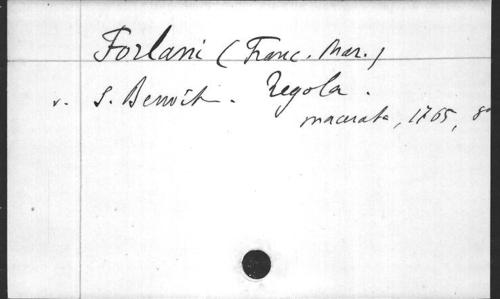 Forlani (Franc. Mar.)
v. S. Benoît. Regola.
Macerata, 1765, 8º